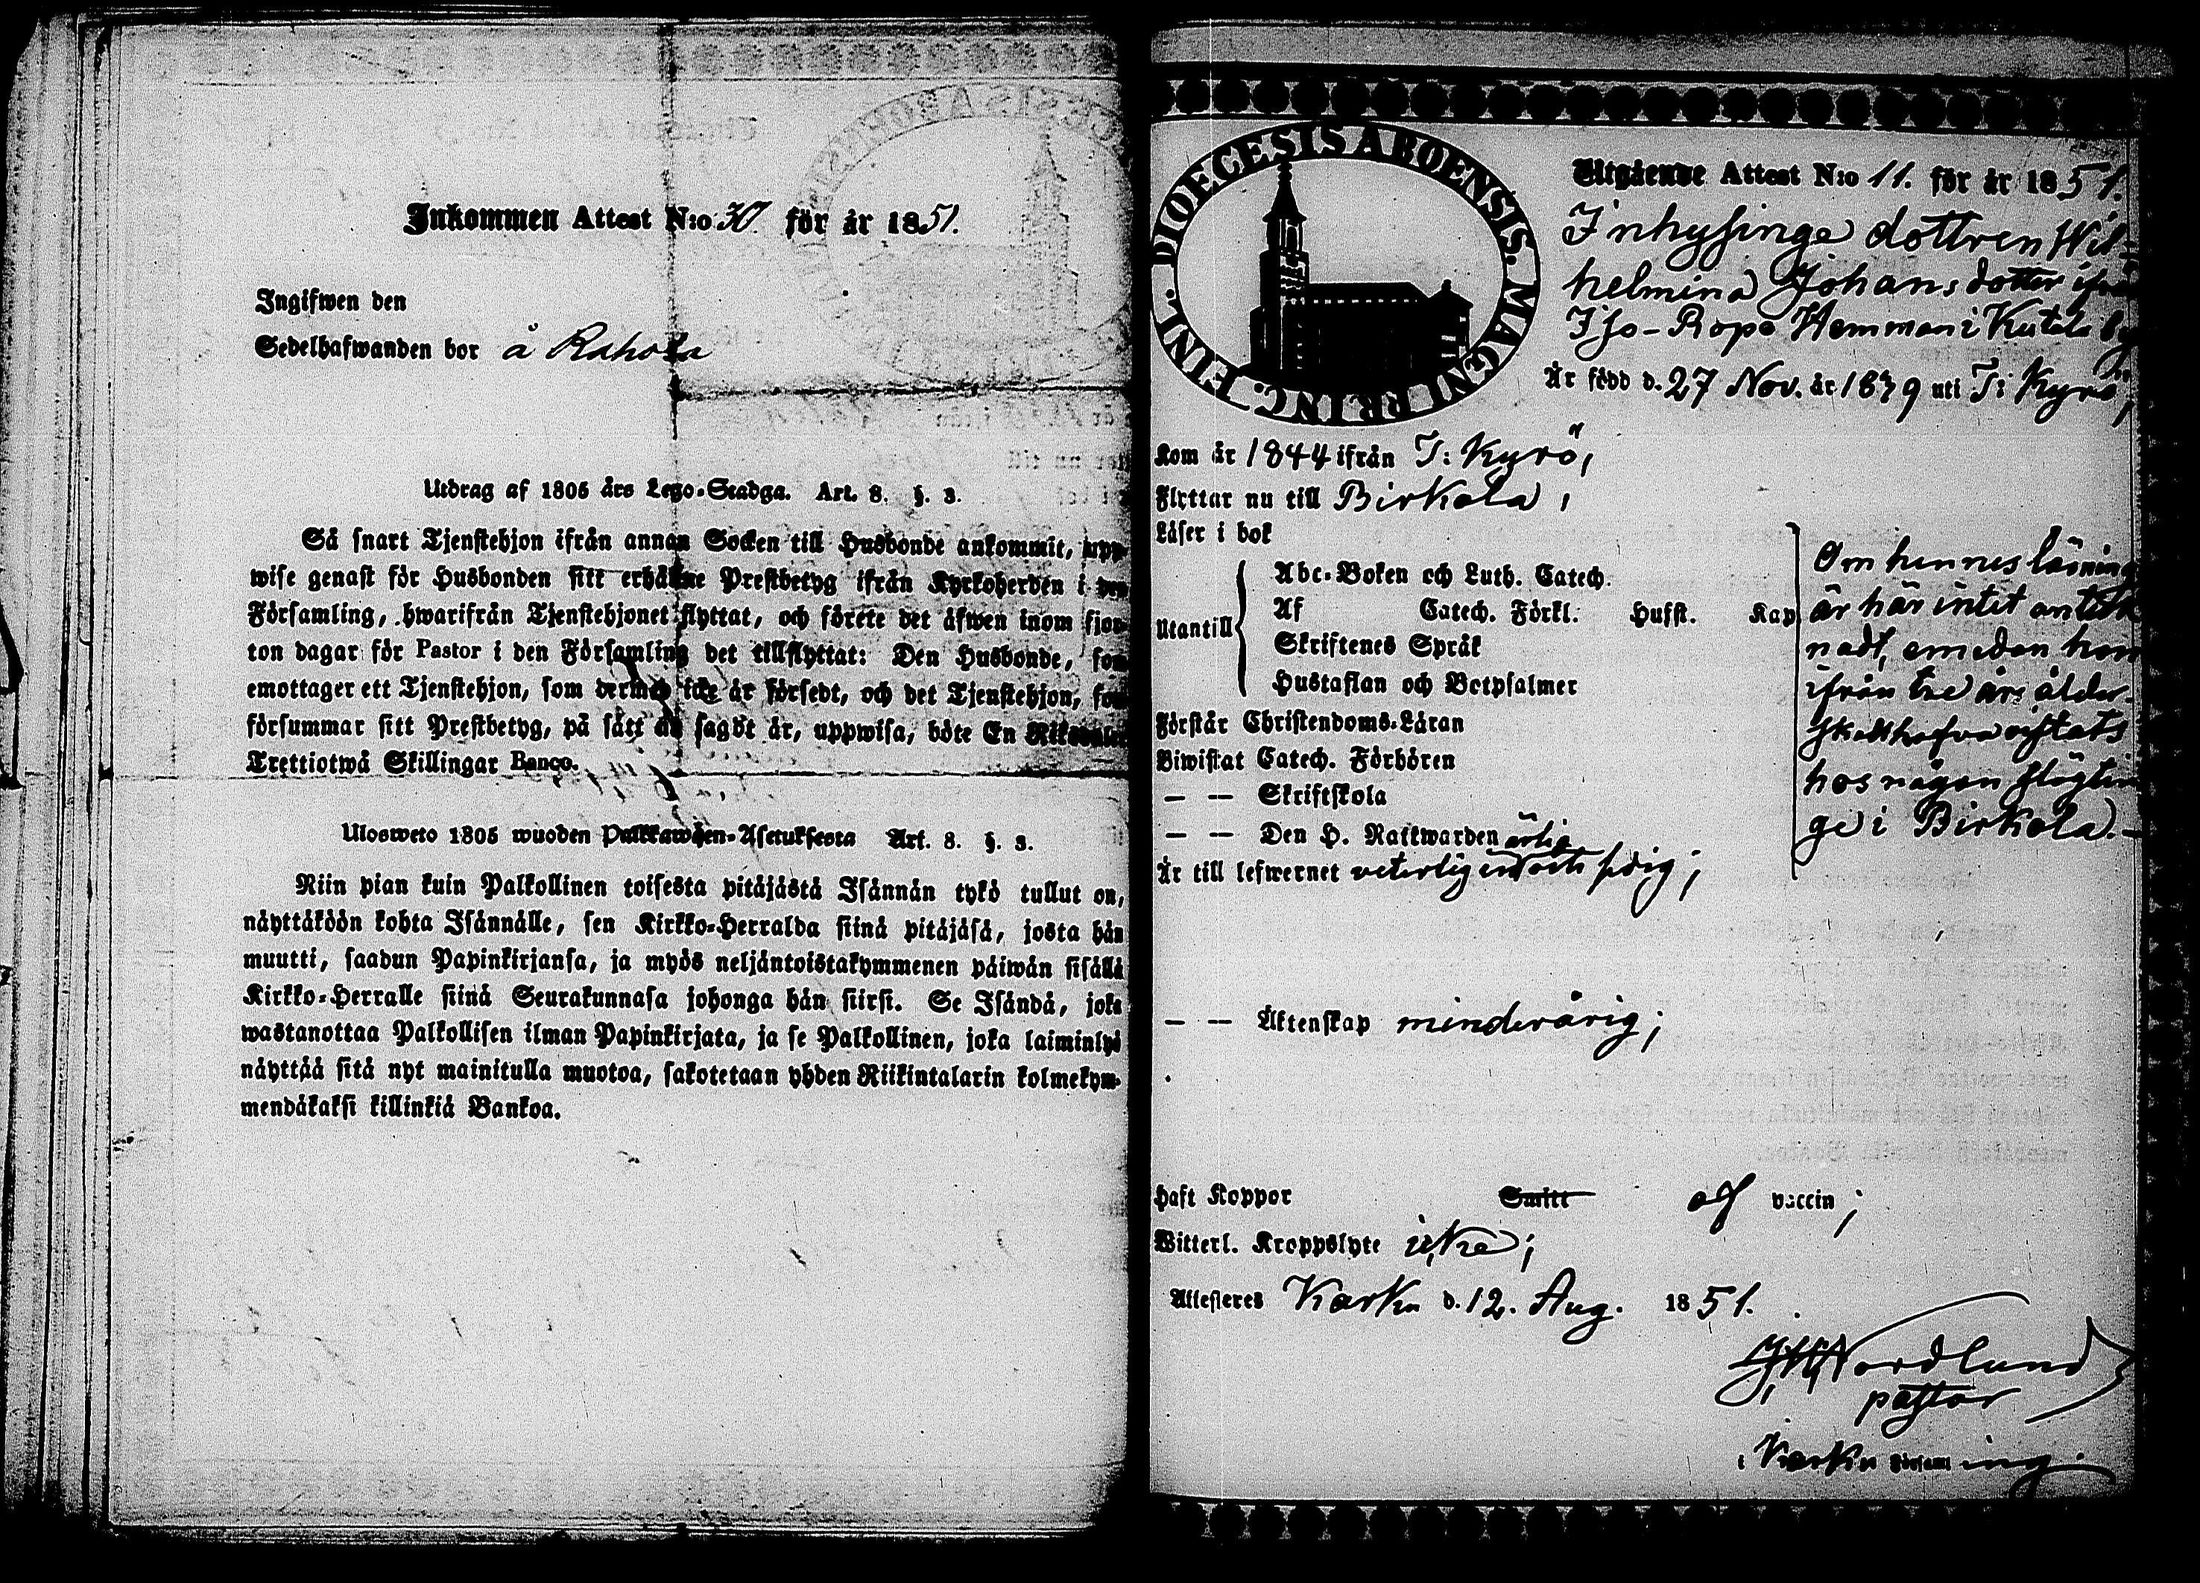 Inkommen Attest N:o 30. för år 1851.
Ingifwen den
Sedelhafwanden bor å Rahola
Utdrag af 1805 års Lego-Stadga. Art. 8. §. 3.
Så snart Tjenstehjon ifrån annan Socken till Husbonde ankommit, upp-
wise genast för Husbonden sitt erhållne Prestbetyg ifrån Kyrkoherden i den
Församling, hwarifrån Tjenstehjonet flyttat, och förete det äfwen inom fjor-
ton dagar för Pastor i den Församling det tillflyttat: Den Husbonde, som
emottager ett Tjenstehjon, som dermed icke är försedt, och det Tjenstehjon, som
försummar sitt Prestbetyg, på sätt nu sagdt är, uppwisa, böte En Riksdaler
Trettiotwå Skillingar Banco.
Ulosweto 1805 wuoden Palkkawäen-Asetuksesta Art. 8. §. 3.
Niin pian kuin Palkollinen toisesta pitäjästä Isännän tykö tullut on,
näyttäköön kohta Isännälle, sen Kirkko-Herralda siinä pitäjäsä, josta hän
muutti, saadun Papinkirjansa, ja myös neljäntoistakymmenen päiwän sisällä
Kirkko-Herralle siinä Seurakunnasa johonga hän siirsi. Se Isändä, joka
wastanottaa Palkollisen ilman Papinkirjata, ja se Palkollinen, joka laiminlyö
näyttää sitä nyt mainitulla muotoa, sakotetaan yhden Riikintalarin kolmekym-
mendäkaksi killinkiä Bankoa.
DIOECESIS ABOENSIS. MAGNI PRINC. FINL.
Utgående Attest N:o 11. för år 1851.
Inhysinge dottren Wil-
helmina Johansdotter ifrån
Iso-Ropo Hemman i Kutala by
Är född d. 27 Nov. år 1839 uti T: Kyrö,
Kom år 1844 ifrån T: Kyrö,
Flyttar nu till Birkala,
Läser i bok
Utantill
Abc-Boken och Luth. Catech.
Af Catech. Förkl. Hufst. Kap.
Skriftenes Språk
Hustaflan och Botpsalmer
Om hennes läsning
är här intet anteck-
nadt, emedan hon
ifrån tre års ålder
skall hafva vistats
hos någon slägtin-
ge i Birkala.-
Förstår Christendoms-Läran
Biwistat Catech. Förhören
— — Skriftskola
— — Den H. Nattwarden
Är till lefwernet veterligen ärlig och frejdig;
— — Äktenskap minderårig;
Haft Koppor Smitt af vaccin;
Witterl. Kroppslyte icke;
Attesteres Karku d. 12. Aug. 1851.
Nordlund
pastor
i Karku Församling.